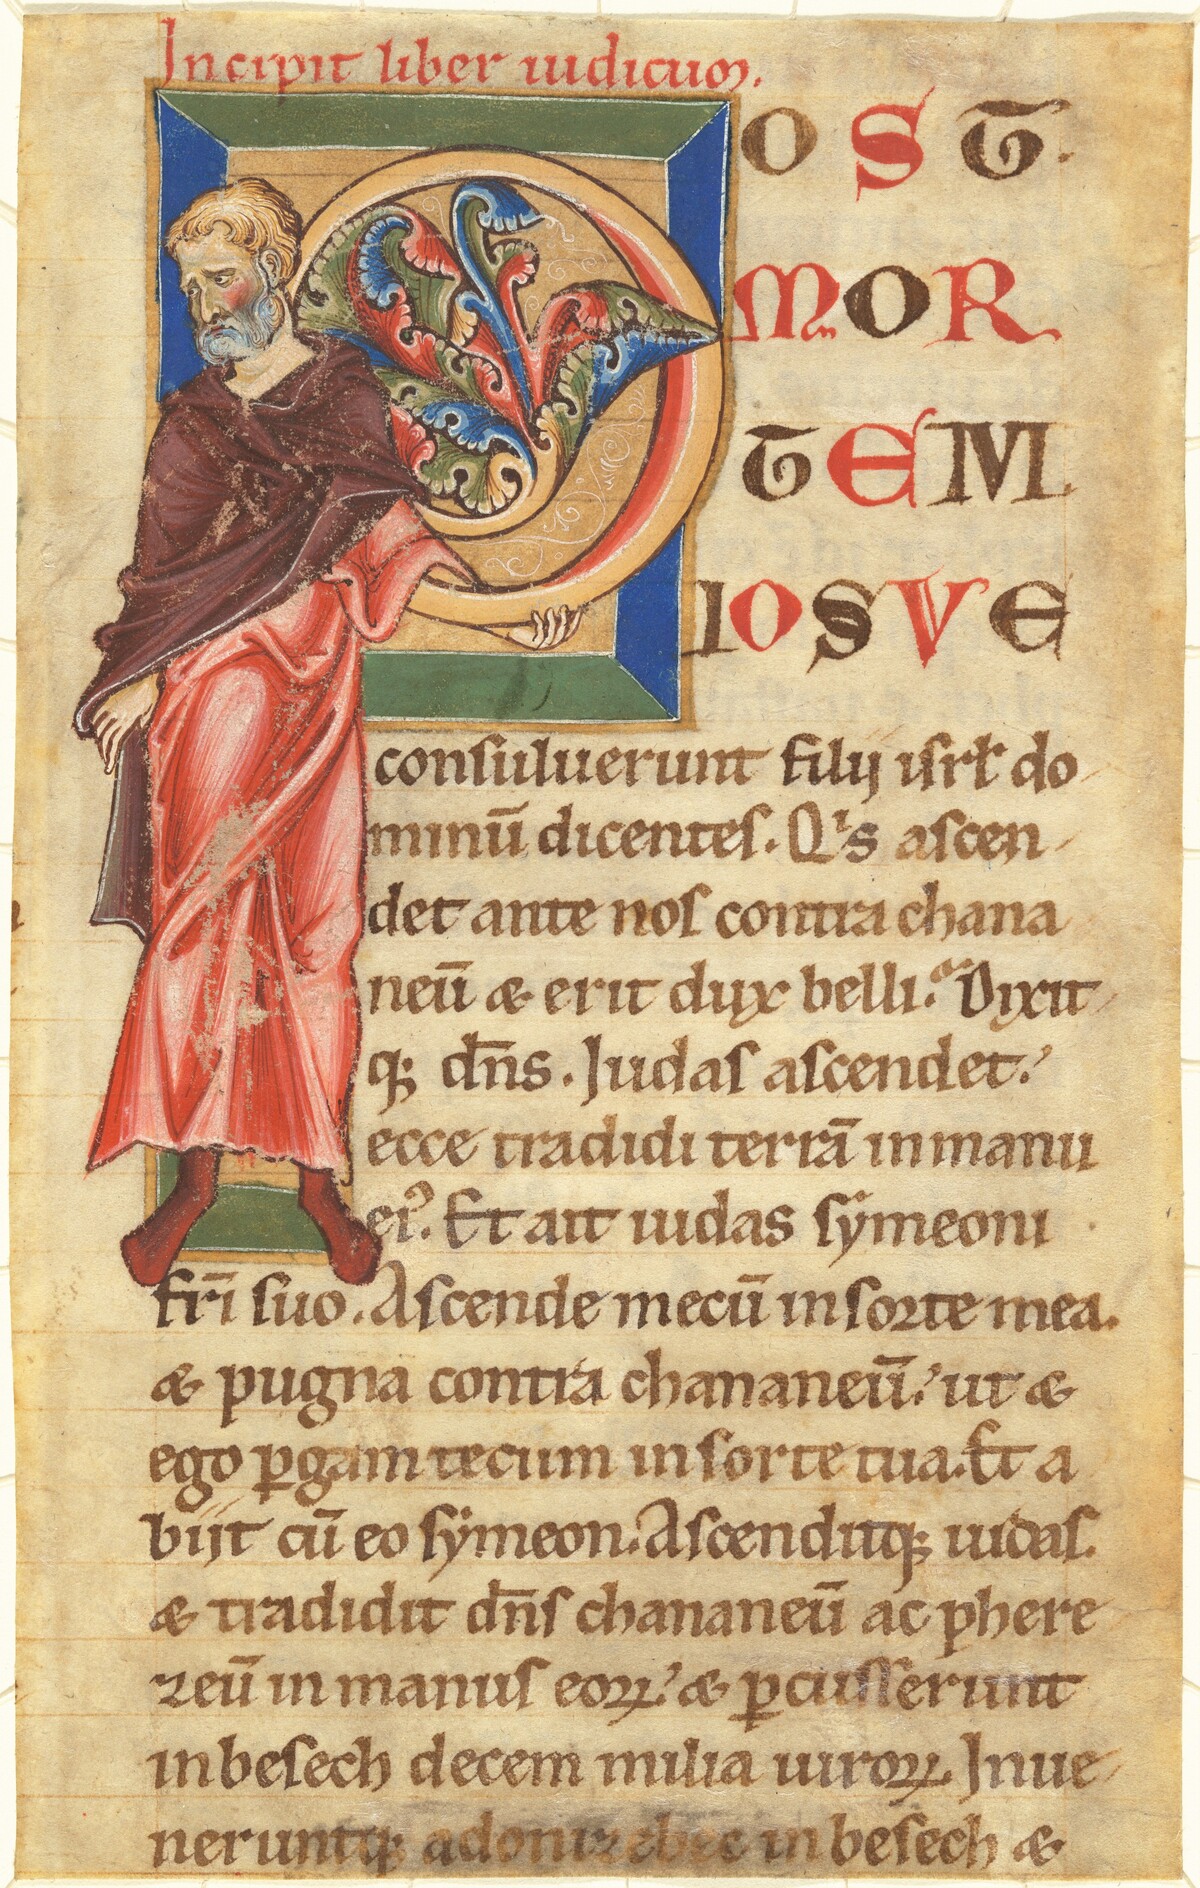 Incipit liber iudicum.
POST.
MOR
TEM
IOSVE
consuluerunt filij isrl do
minū dicentes. Qͥs ascen
det ante nos contra chana
neū & erit dux belli? Dixit
q; dn̄s. Judas ascendet.
ecce tradidi terrā in manu
eiꝰ. Et ait iudas symeoni
fr̄i suo. Ascende mecū in sorte mea.
& pugna contra chananeū. ut &
ego ꝑgam tecum in sorte tua. Et a
bijt cū eo symeon. Ascenditq; iudas.
& tradidit dn̄s chananeū ac phere
zeū in manus eoꝝ. & ꝑcusserunt
in besech decem milia uiroꝝ. Inue
neruntq; adonizebec in besech &